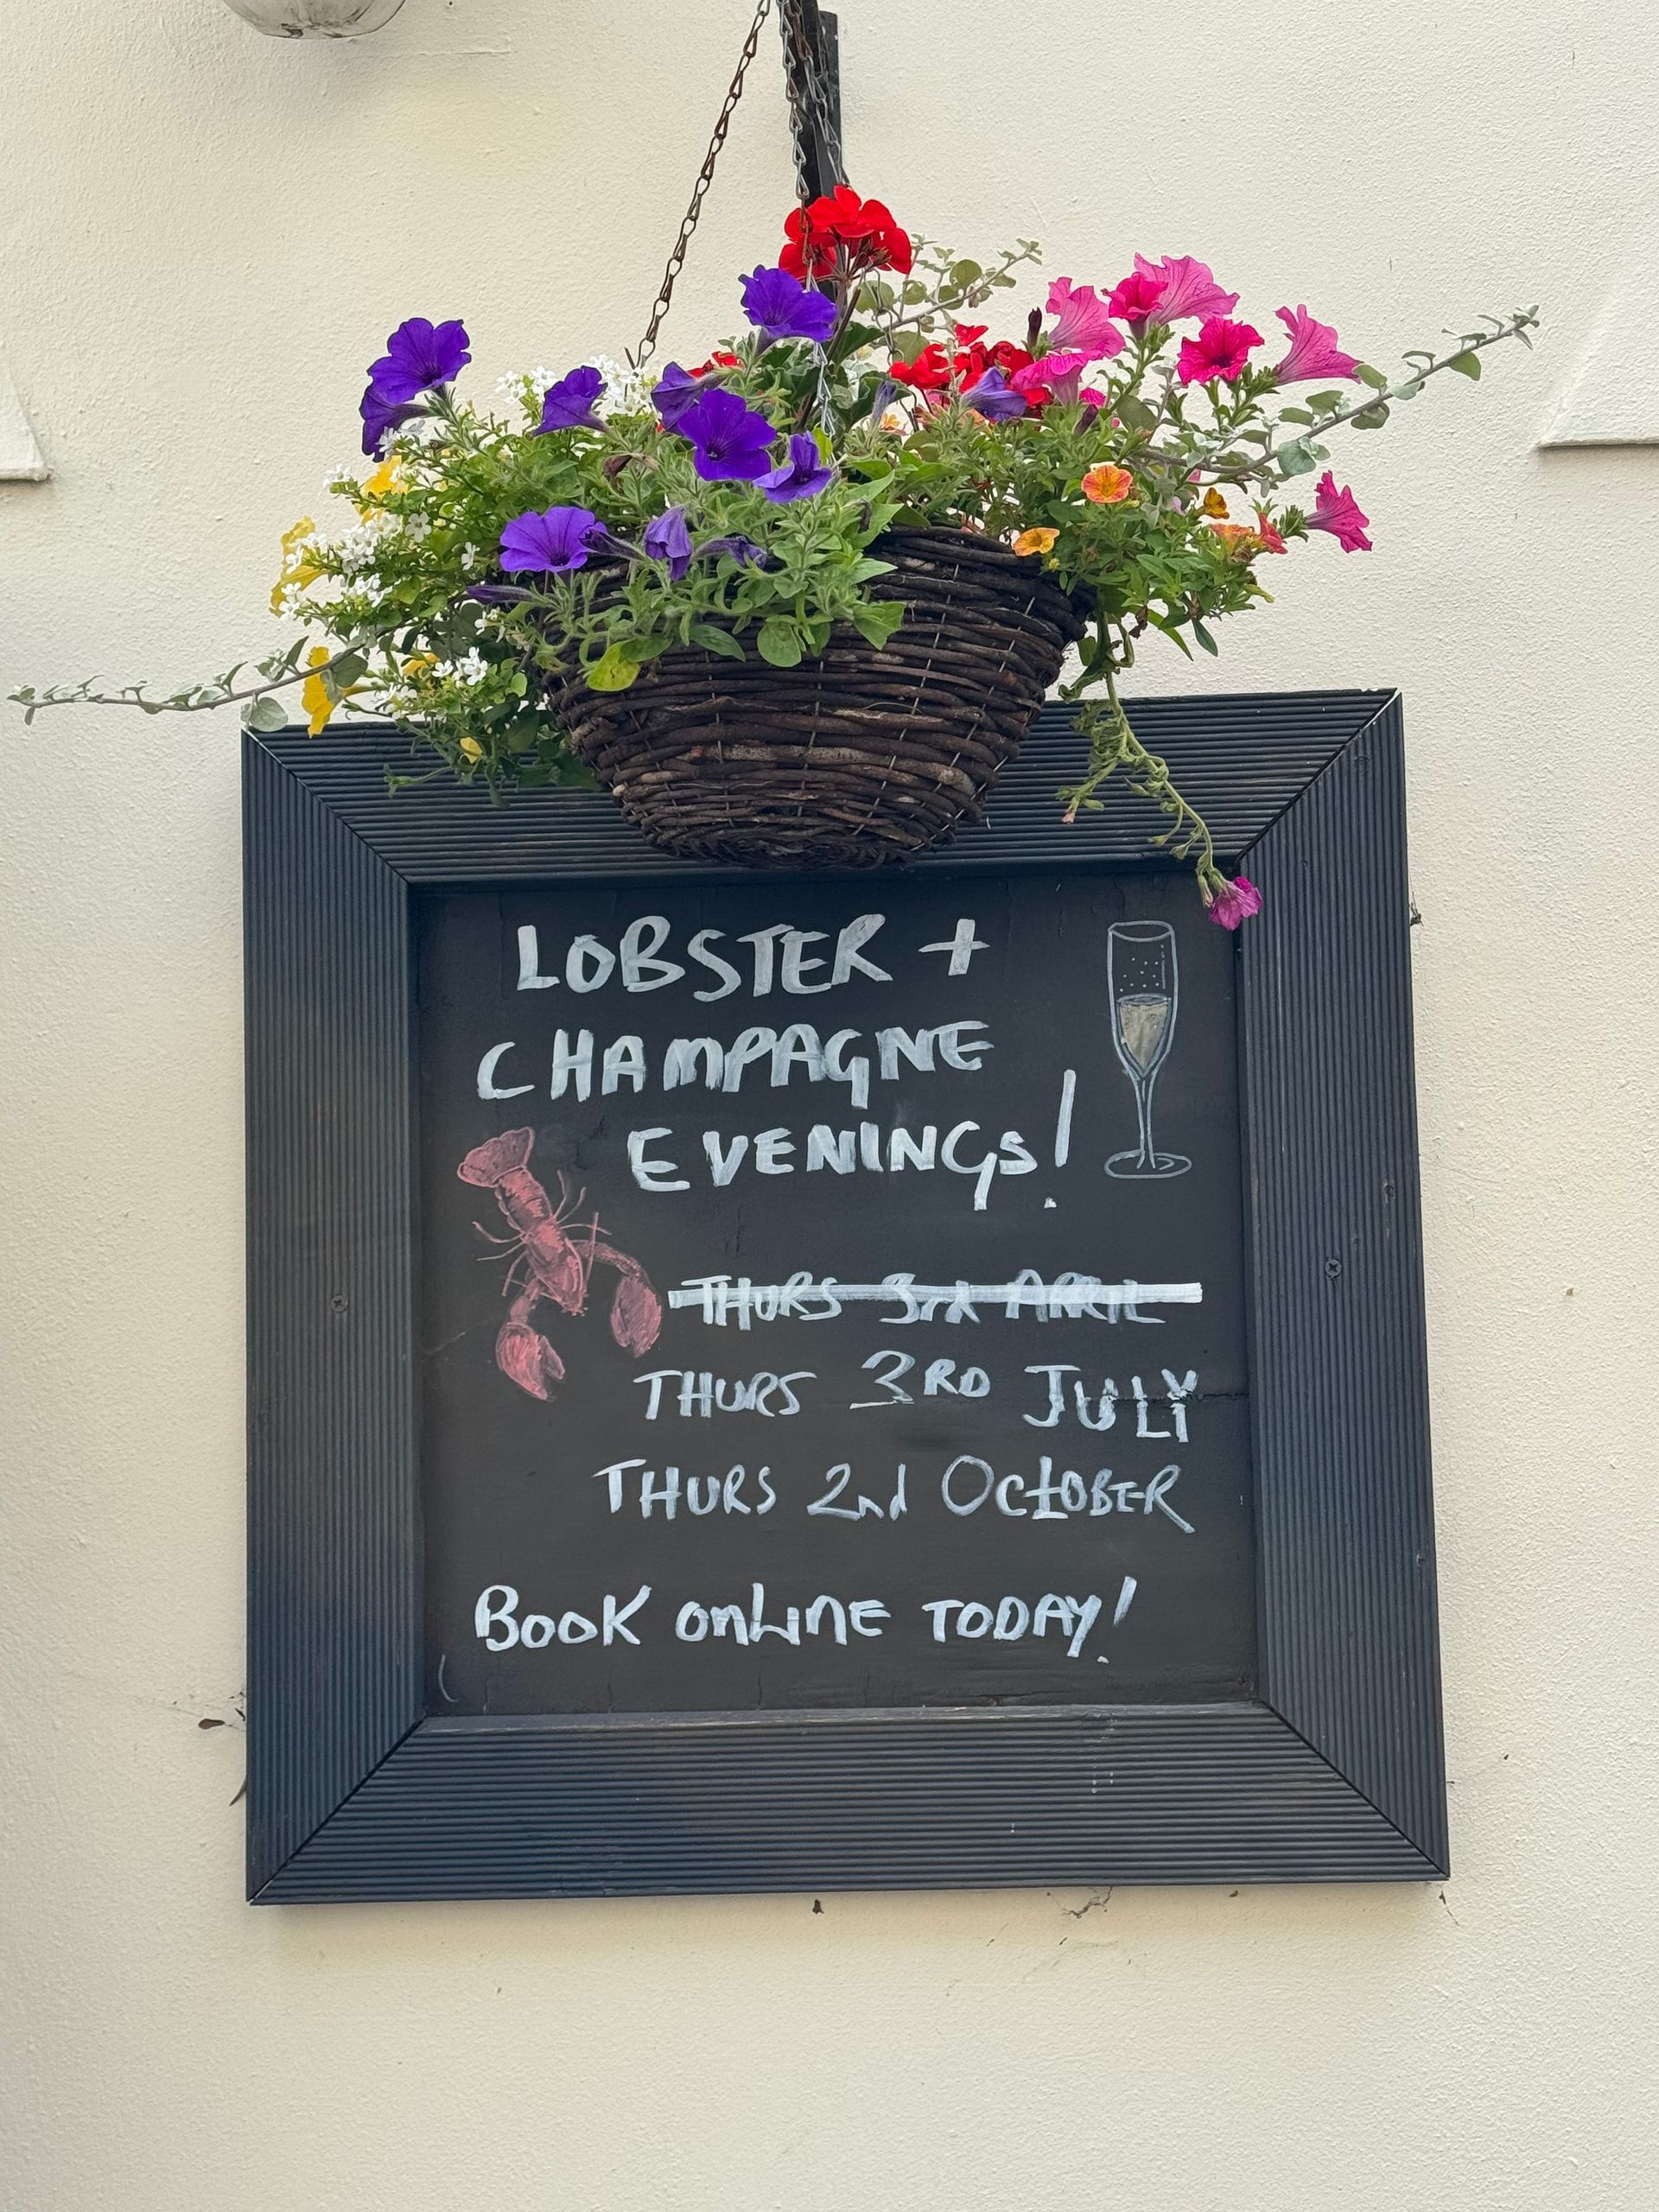 LOBSTER +
CHAMPAGNE
EVENINGS!
THURS 3rd APRIL
THURS 3RD JULY
THURS 2nd OCTOBER
BOOK ONLINE TODAY!